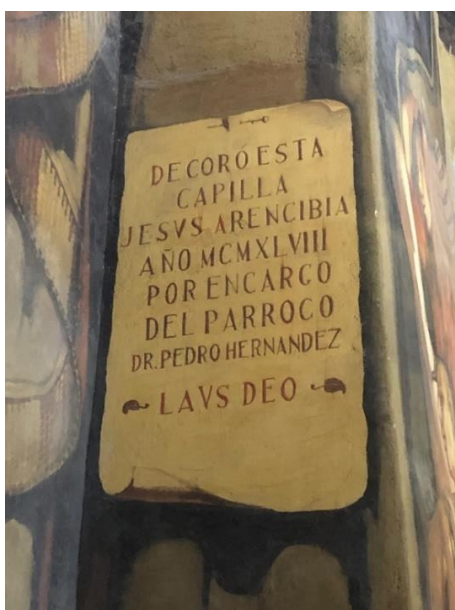 DECORÓ ESTA
CAPILLA
JESVS ARENCIBIA
AÑO MCMXLVIII
POR ENCARGO
DEL PARROCO
DR. PEDRO HERNANDEZ
LAVS DEO